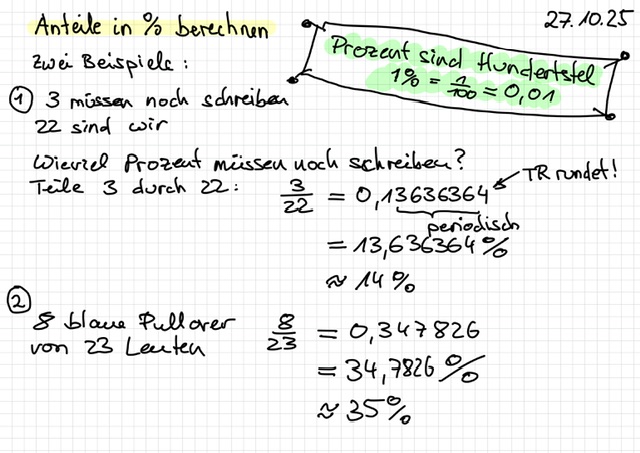 Anteile in % berechnen
27.10.25
Prozent sind Hundertstel
1% = 1/100 = 0,01
Zwei Beispiele:
① 3 müssen noch schreiben
22 sind wir
Wieviel Prozent müssen noch schreiben?
Teile 3 durch 22: 3/22 = 0,13636364 TR rundet!
periodisch
= 13,636364%
≈ 14%
②
8 blaue Pullover
von 23 Leuten
8/23 = 0,347826
= 34,7826%
≈ 35%